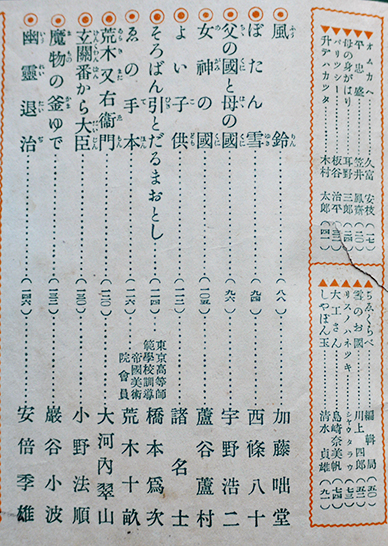 オムカヘ 久富 安枝 (一七)
平忠盛 笠井 鳳齋 (二〇)
母の身がはり 耳野 三郎 (二四)
板谷 治平
升デハカツタ 木村 太郎 (四一)
ちゑくらべ 編輯局 (五〇)
雪のお國 川上四郎
リスノハネツキ シヤウタラウ
大工さん 島崎奈美帆
しやぼん玉 清水貞雄
風鈴 (八八) 加藤咄堂
ぼたん雪 (九四) 西條八十
父の國と母の國 (九六) 宇野浩二
女神の國 (一〇五) 蘆谷蘆村
よい子供 諸名士
そろばん引とだるまおとし (一二四) 東京高等師範學校訓導 橋本爲次
ゑの手本 帝國美術院會員 荒木十畝
荒木又右衞門 大河内翠山
玄關番から大臣 小野法順
魔物の釜ゆで 巖谷小波
幽靈退治 (一四六) 安倍季雄